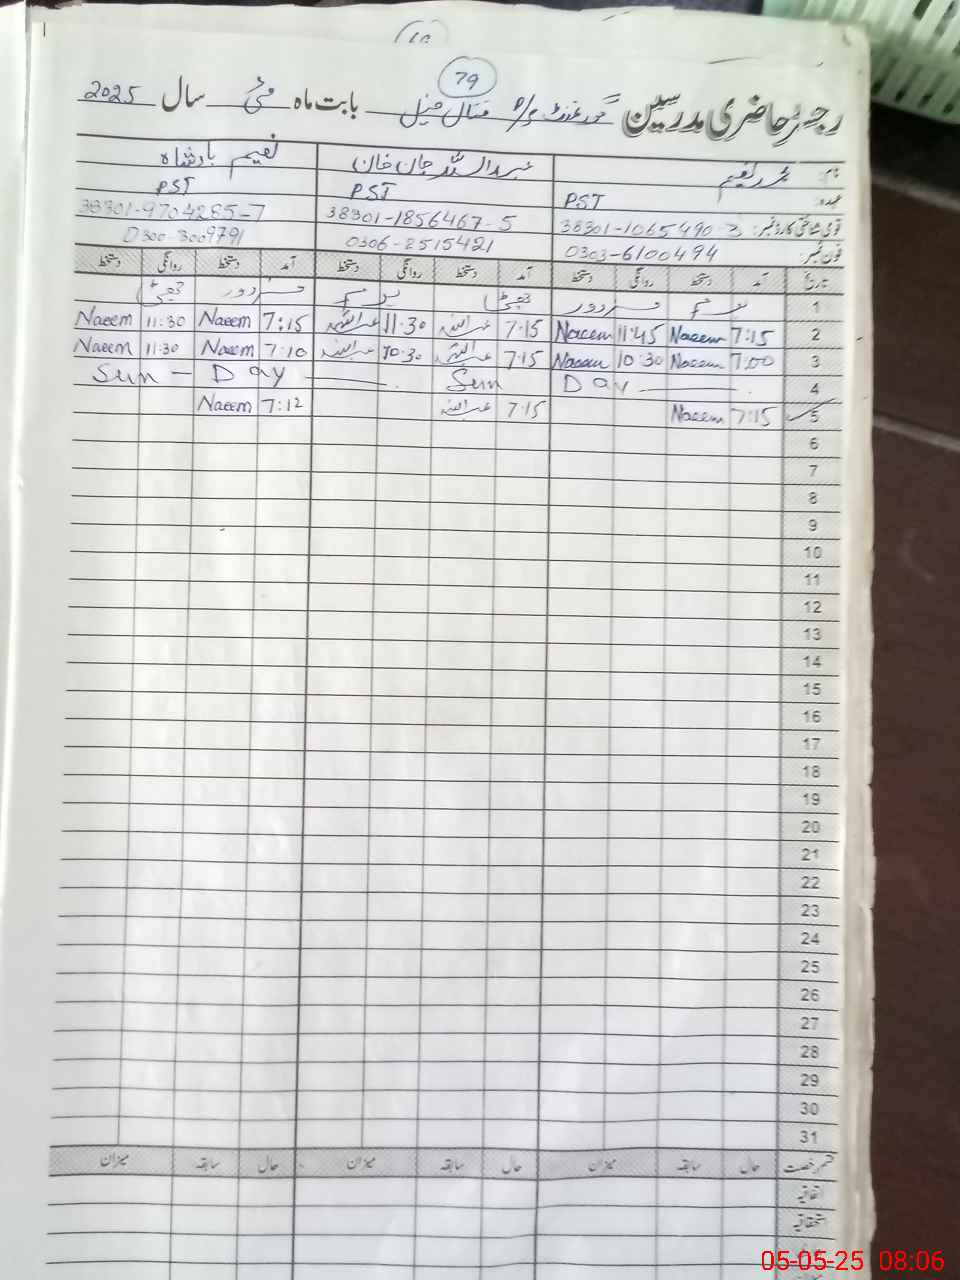 79
رجسٹر حاضری مدرسین گورنمنٹ پ/س بابت ماہ مئی سال 2025
نام: محمد نعیم عبداللہ جان خان نعیم بادشاہ
عہدہ: PST PST PST
قومی شناختی کارڈ نمبر: 38301-1065490-3 38301-1856467-5 38301-9704285-7
فون نمبر: 0303-6100494 0306-2515421 0300-3009791
تاریخ آمد دستخط روانگی دستخط آمد دستخط روانگی دستخط آمد دستخط روانگی دستخط
1 یوم مزدور چھٹی یوم مزدور چھٹی
2 7:15 Naeem 11:45 Naeem 7:15 عبداللہ 11:30 عبداللہ 7:15 Naeem 11:30 Naeem
3 7:00 Naeem 10:30 Naeem 7:15 عبداللہ 10:30 عبداللہ 7:10 Naeem 11:30 Naeem
4 Sun Day Sun - Day
5 7:15 Naeem 7:15 عبداللہ 7:12 Naeem
6
7
8
9
10
11
12
13
14
15
16
17
18
19
20
21
22
23
24
25
26
27
28
29
30
31
قسم رخصت حال سابقہ میزان حال سابقہ میزان حال سابقہ میزان
اتفاقیہ
استحقاقیہ
05-05-25 08:06